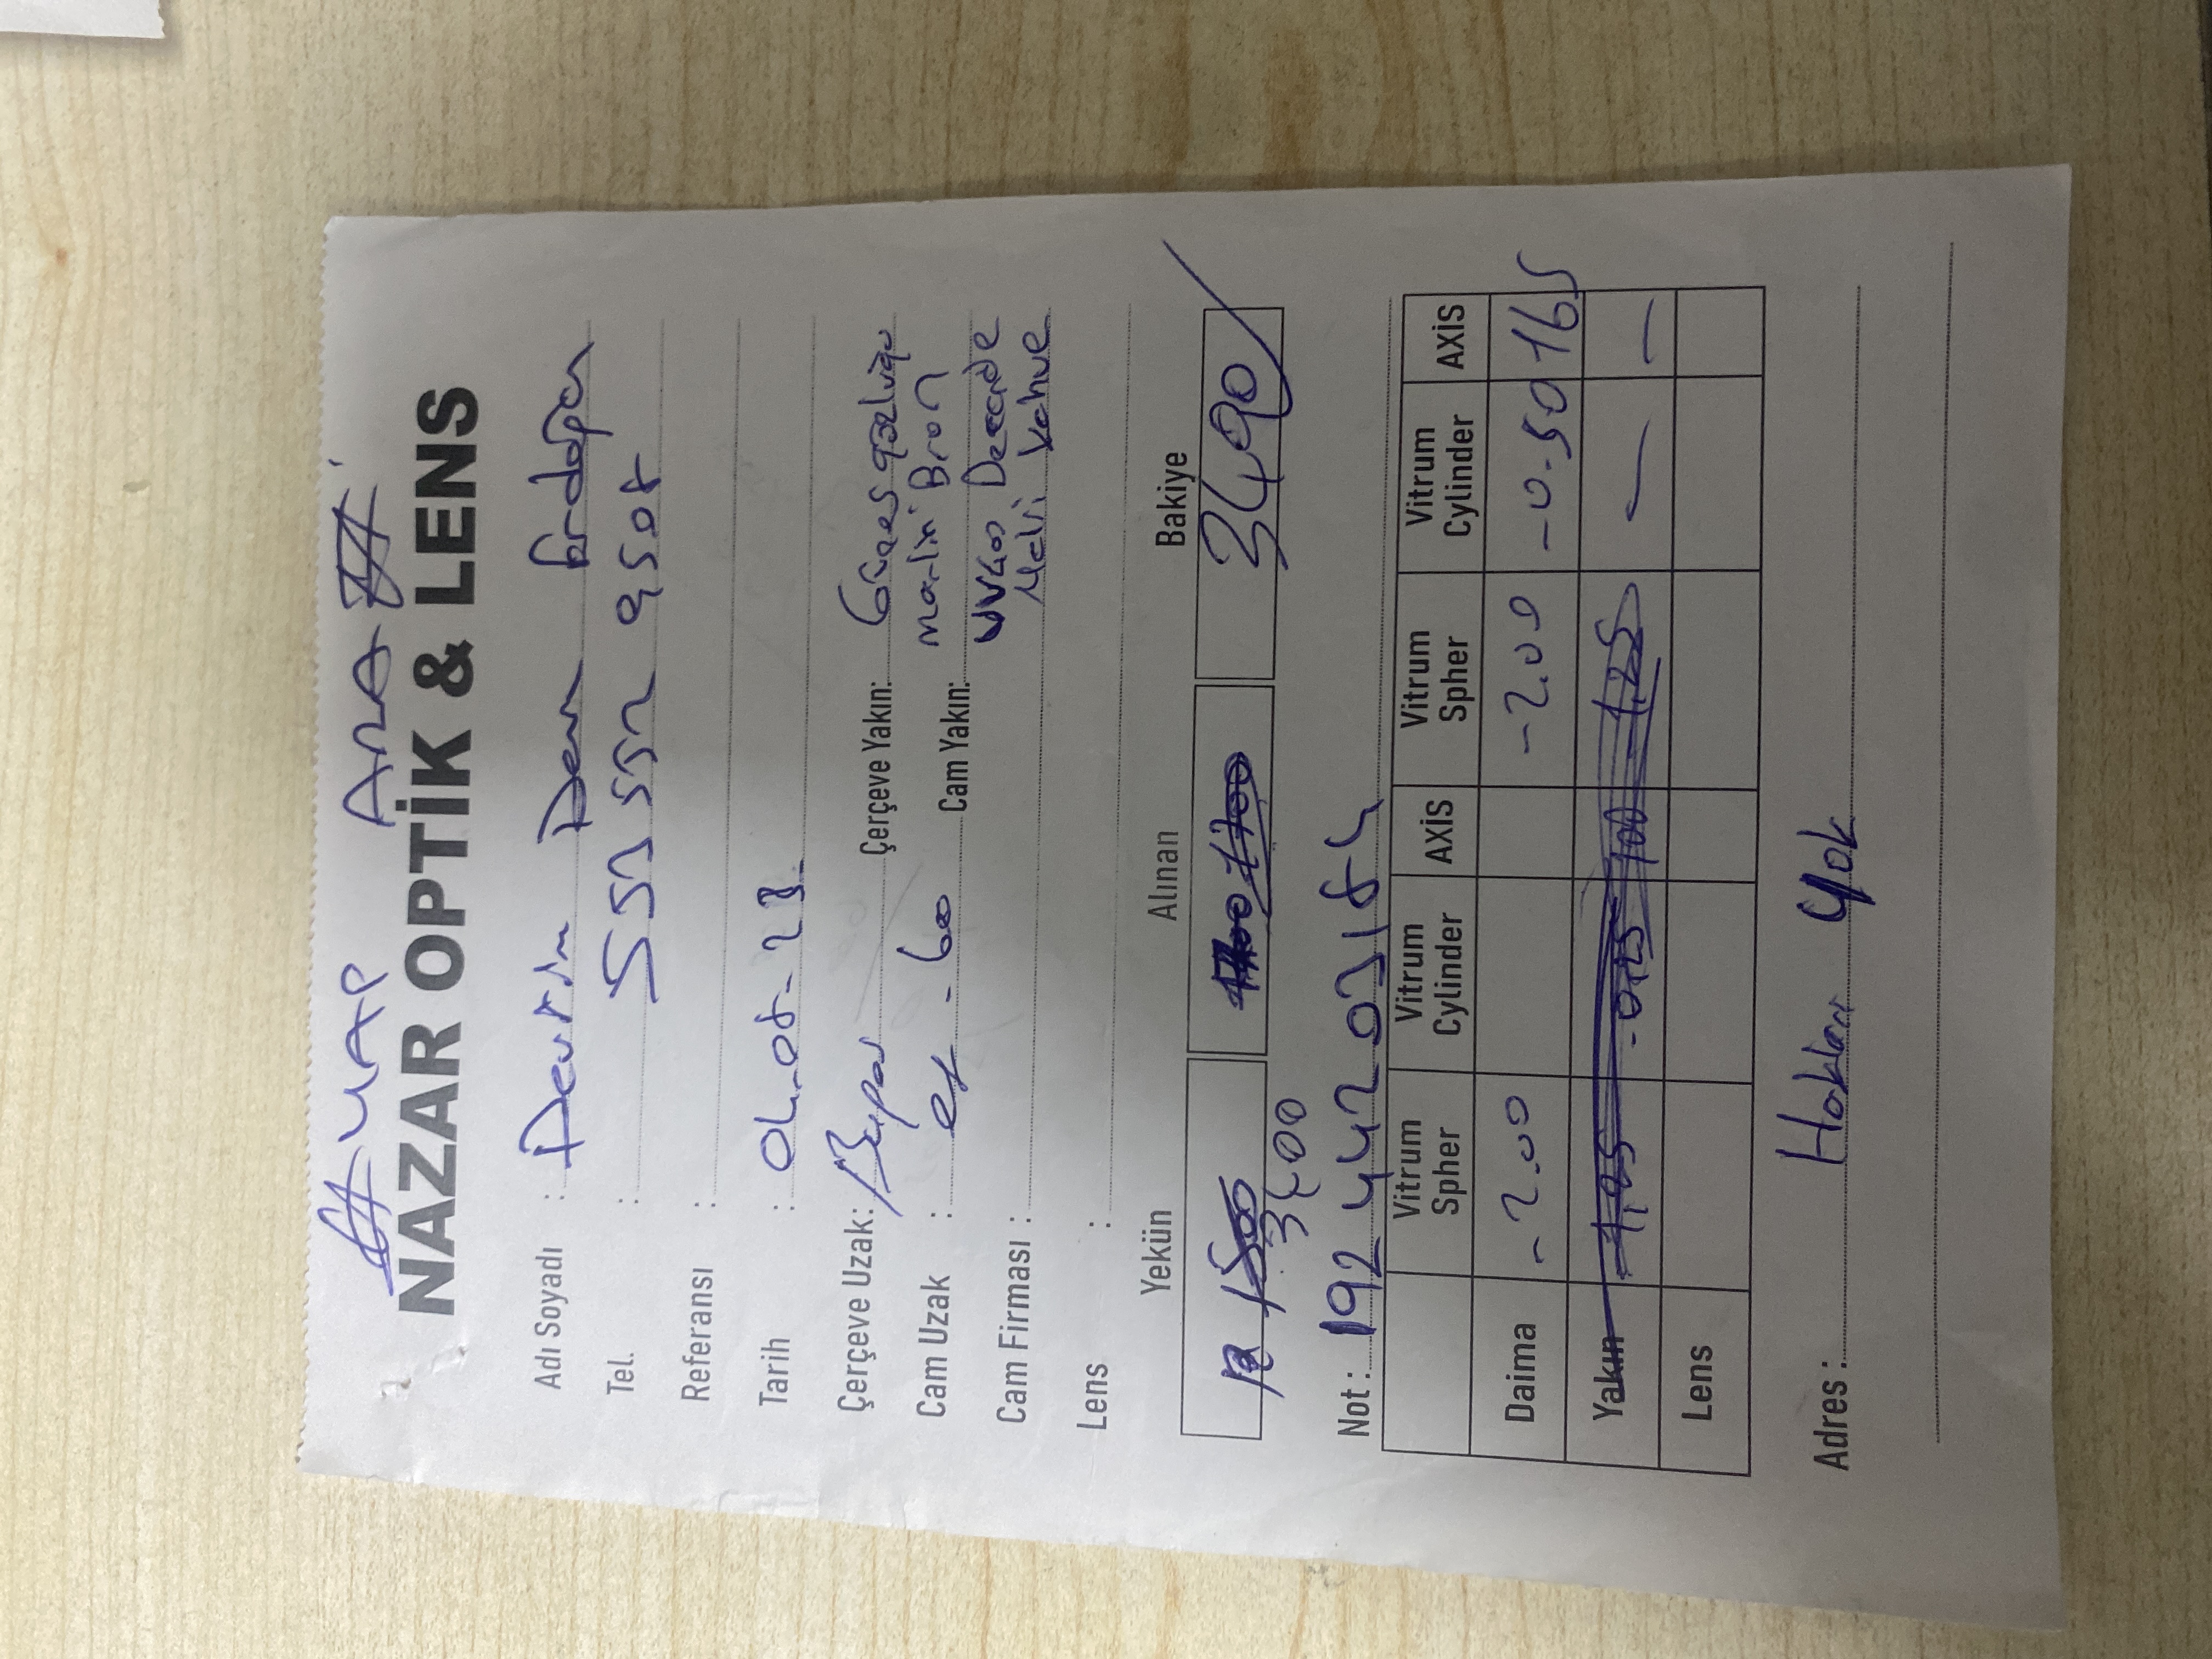 YAP ARA
NAZAR OPTİK & LENS
Adı Soyadı : Devrim Erdoğan
Tel. : 553 552 9508
Referansı :
Tarih : 04-08-23
Çerçeve Uzak: Çerçeve Yakın: Güneş gözlüğü
Cam Uzak : - 60 Cam Yakın: Martin Bron
UV400 Degrade
Cam Firması : Mavi Kahve
Lens :
Yekün Alınan Bakiye
1500 1700 3490
3400
Not : 192 442 03184
Vitrum Spher Vitrum Cylinder AXİS Vitrum Spher Vitrum Cylinder AXİS
Daima -2.00 -2.00 -0.50 165
Yakın -1,25 -0,25 100 -1,25 — —
Lens
Adres : Hakları Yok